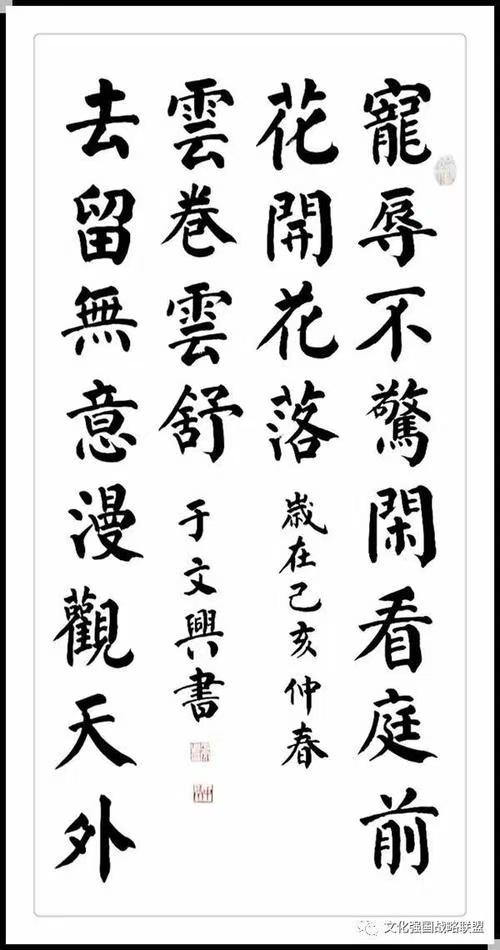 寵辱不驚閑看庭前
花開花落
歲在己亥仲春
去留無意漫觀天外
雲卷雲舒
于文興書
文化强国战略联盟